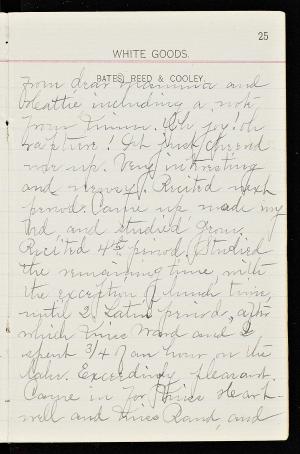 25
WHITE GOODS.
BATES, REED & COOLEY.
from dear Mamma and
Hattie including a note
from Emma. Oh joy! oh
rapture! It just cheered
me up. Very interesting
and newsy. Recited next
period. Came up made my
bed and studied Grom.
Recited 4th period. Studied
the remaining time with
the exception of lunch time,
until 2. Latin period, after
which Miss Ward and I
spent 3/4 of an hour on the
lake. Exceedingly pleasant.
Came in for Miss Heart-
well and Miss Rand, and